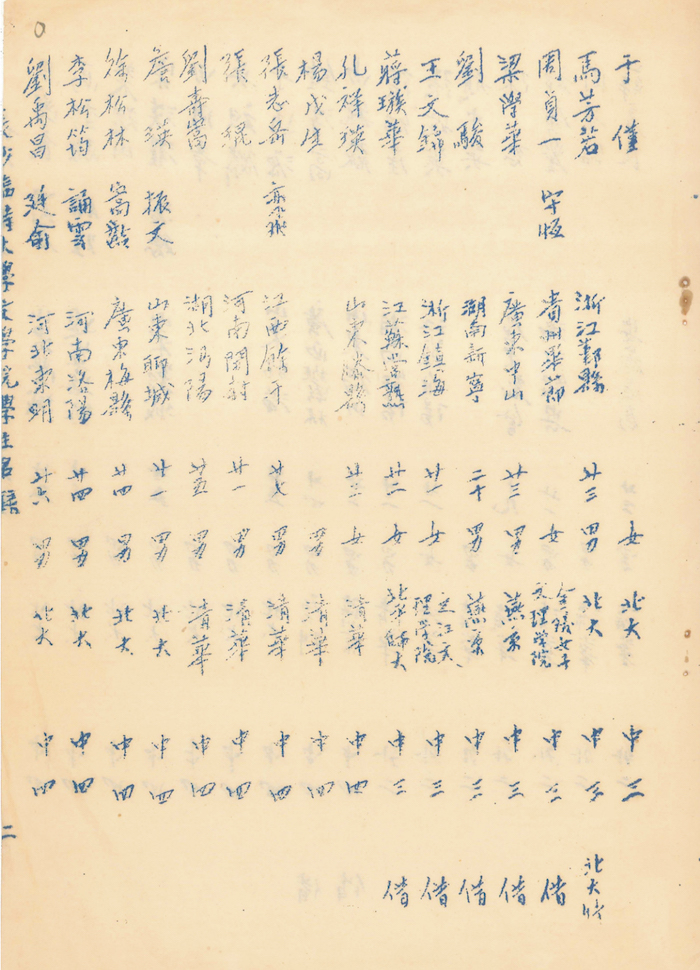 于僅 女 北大 中 三
馬芳若 浙江鄞縣 廿三 男 北大 中 三 北大借
周貞一 守恆 貴州畢節 女 金陵女子文理學院 中 三 借
梁學華 廣東中山 廿三 男 燕京 中 三 借
劉駿 湖南新寧 二十 男 燕京 中 三 借
王文錦 浙江鎮海 廿一 女 之江文理學院 中 三 借
蔣璇華 江蘇常熟 廿二 女 北平師大 中 三 借
孔祥瑛 山東滕縣 廿三 女 清華 中 四
楊戊生 男 清華 中 四
張志岳 江西餘干 廿七 男 清華 中 四
張琨 河南開封 廿一 男 清華 中 四
劉壽嵩 湖北沔陽 廿五 男 清華 中 四
詹瑛 振文 山東聊城 廿一 男 北大 中 四
徐松林 嵩齡 廣東梅縣 廿四 男 北大 中 四
李松筠 誦雲 河南洛陽 廿四 男 北大 中 四
劉禹昌 廷俞 河北東明 廿六 男 北大 中 四
長沙臨時大學文學院學生名錄 二